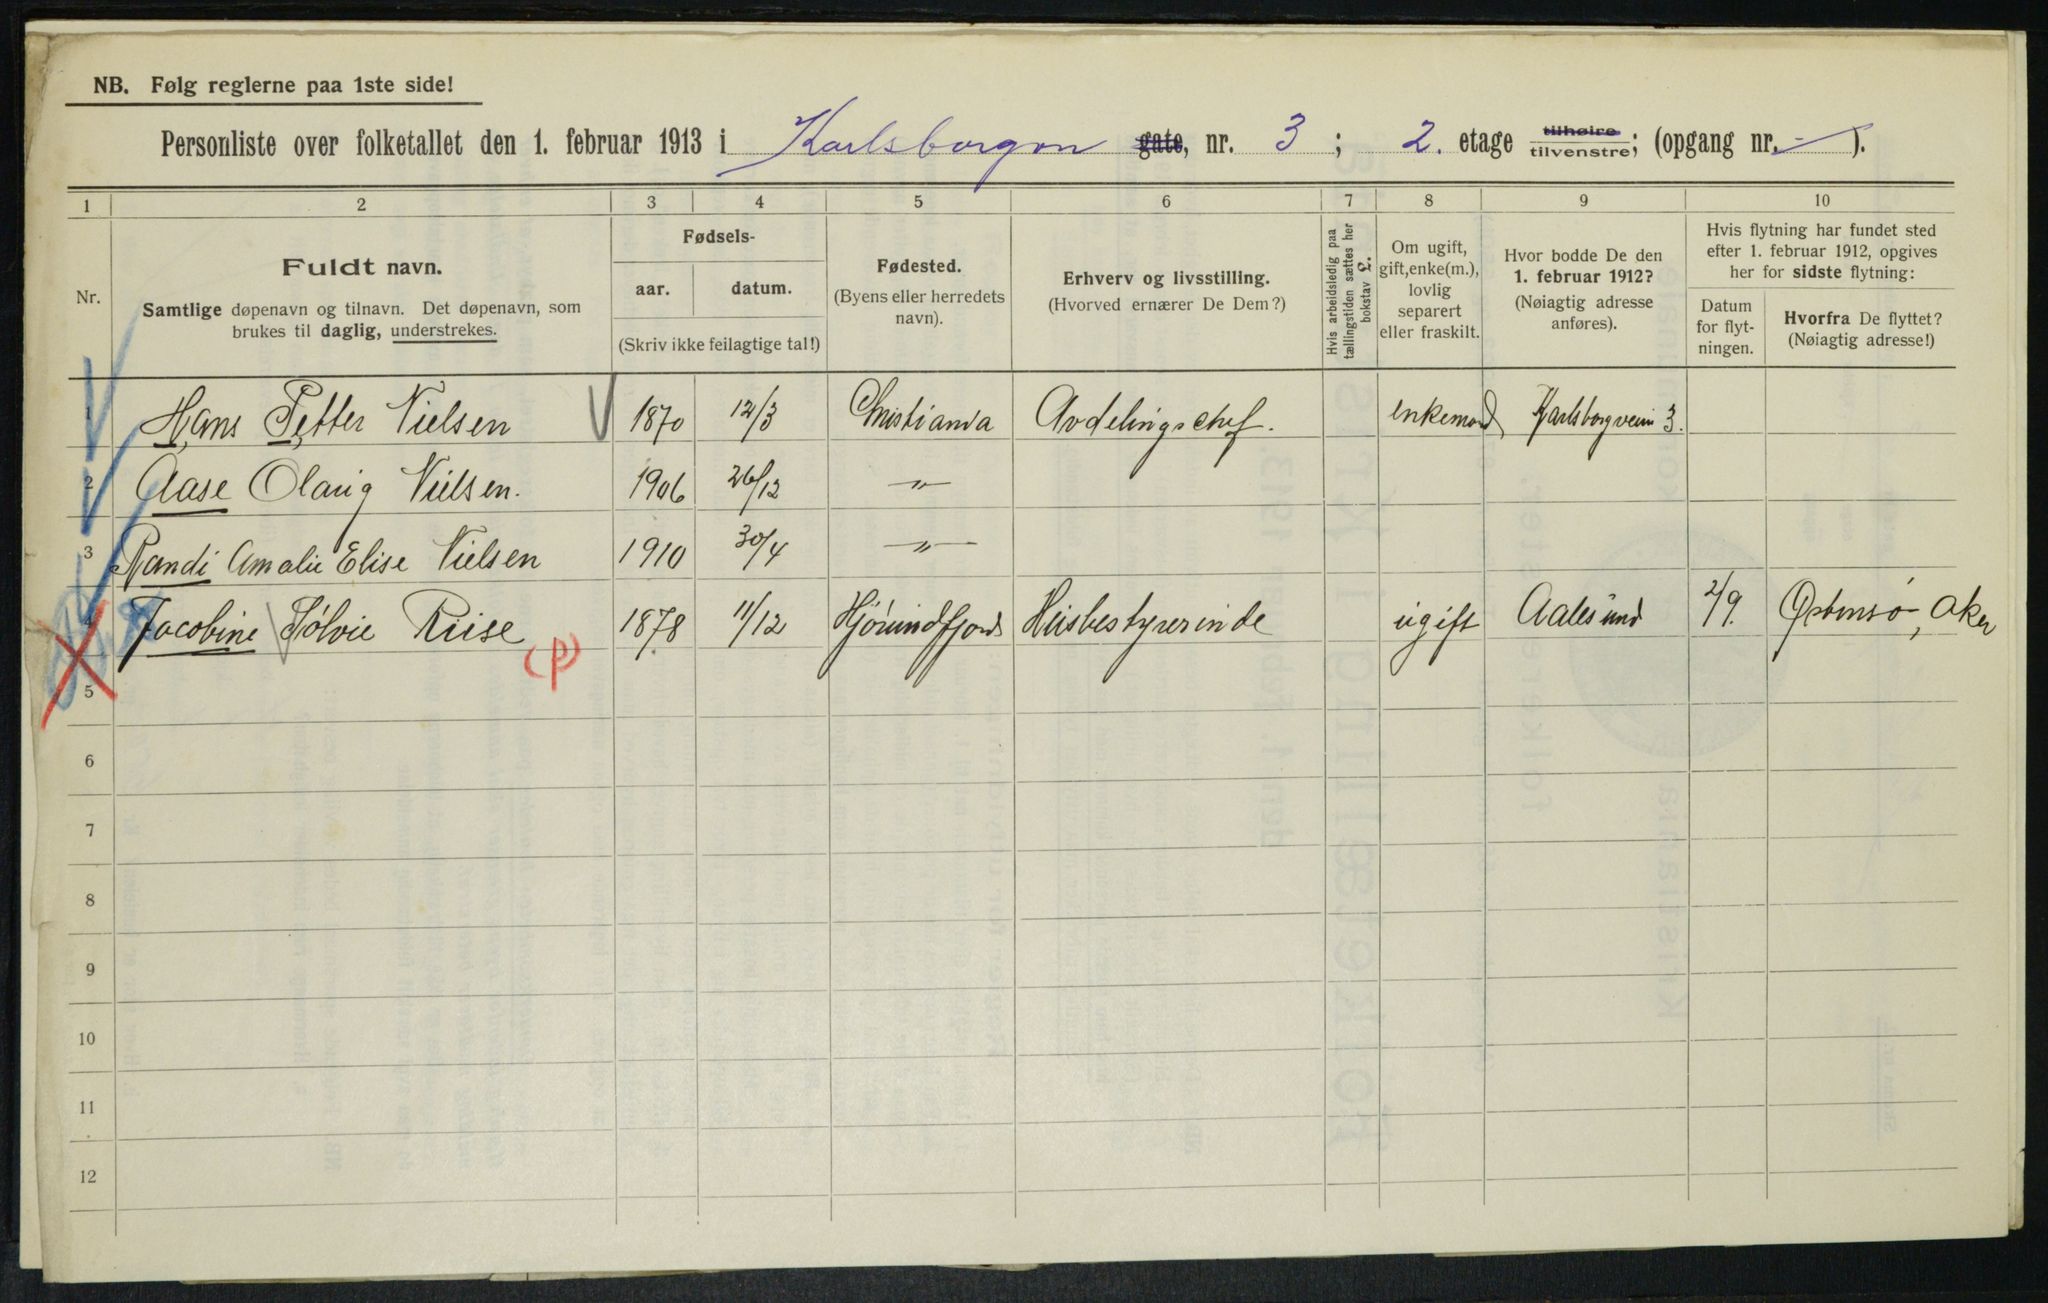 NB. Følg reglerne paa 1ste side!
Personliste over folketallet den 1. februar 1913 i Karlsborgvn gate, nr. 3; 2. etage tilhøire tilvenstre; (opgang nr. - ).
1 2 3 4 5 6 7 8 9 10
Nr.
Fuldt navn.
Samtlige døpenavn og tilnavn. Det døpenavn, som
brukes til daglig, understrekes.
Fødsels-
aar. datum.
(Skriv ikke feilagtige tal!)
Fødested.
(Byens eller herredets
navn).
Erhverv og livsstilling.
(Hvorved ernærer De Dem?)
Hvis arbeidsledig paa
tællingstiden sættes her
bokstav L.
Om ugift,
gift, enke(m.),
lovlig
separert
eller fraskilt.
Hvor bodde De den
1. februar 1912?
(Nøiagtig adresse
anføres).
Hvis flytning har fundet sted
efter 1. februar 1912, opgives
her for sidste flytning:
Datum
for flyt-
ningen.
Hvorfra De flyttet?
(Nøiagtig adresse!)
1 Hans Petter Nielsen 1870 12/3 Christiania Avdelingschef. enkemand Karlsborgveien 3.
2 Aase Olaug Nielsen. 1906 26/12 — " —
3 Randi Amalie Elise Nielsen 1910 30/4 — " —
4 Jacobine Sølvie Riise (p) 1878 11/12 Hjørundfjord Husbestyrerinde ugift Aalesund 2/9. Østensø, Aker
5
6
7
8
9
10
11
12